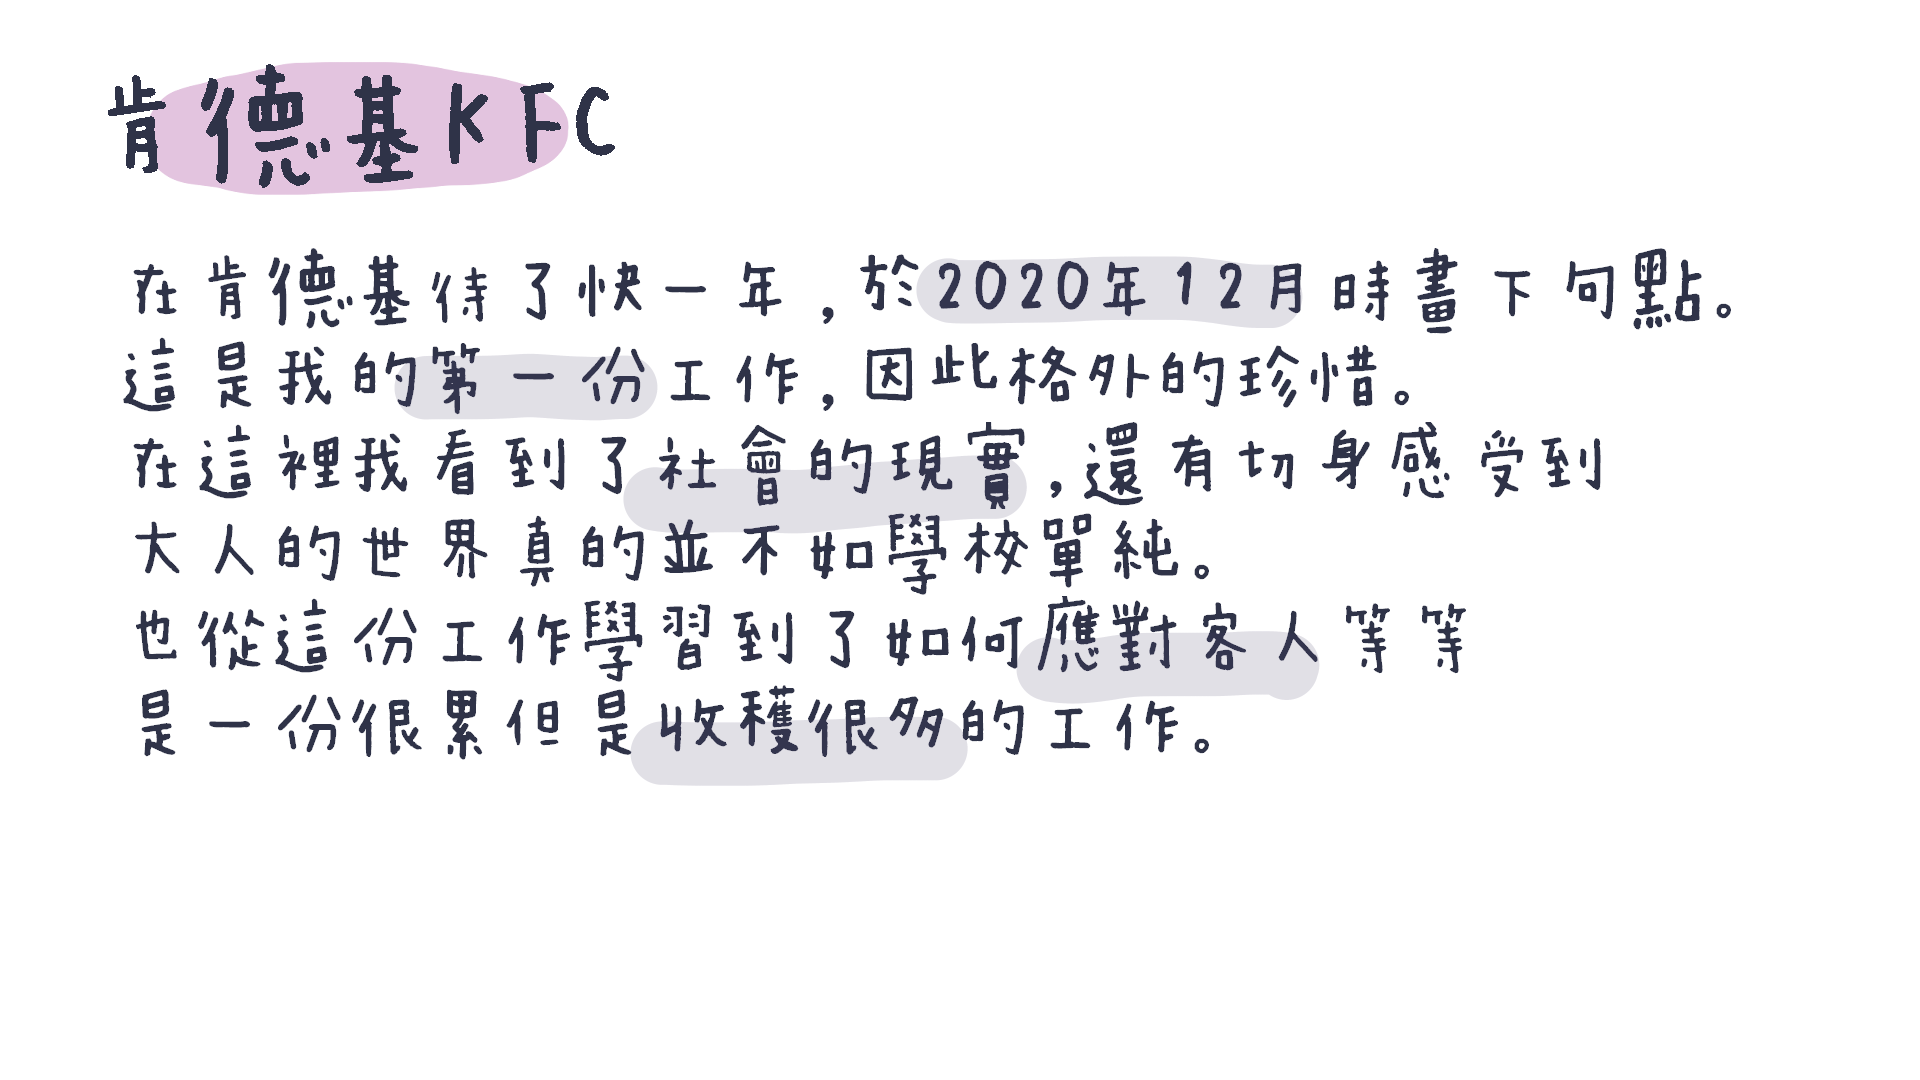 肯德基KFC
在肯德基待了快一年,於2020年12月時畫下句點。
這是我的第一份工作,因此格外的珍惜。
在這裡我看到了社會的現實,還有切身感受到
大人的世界真的並不如學校單純。
也從這份工作學習到了如何應對客人等等
是一份很累但是收穫很多的工作。